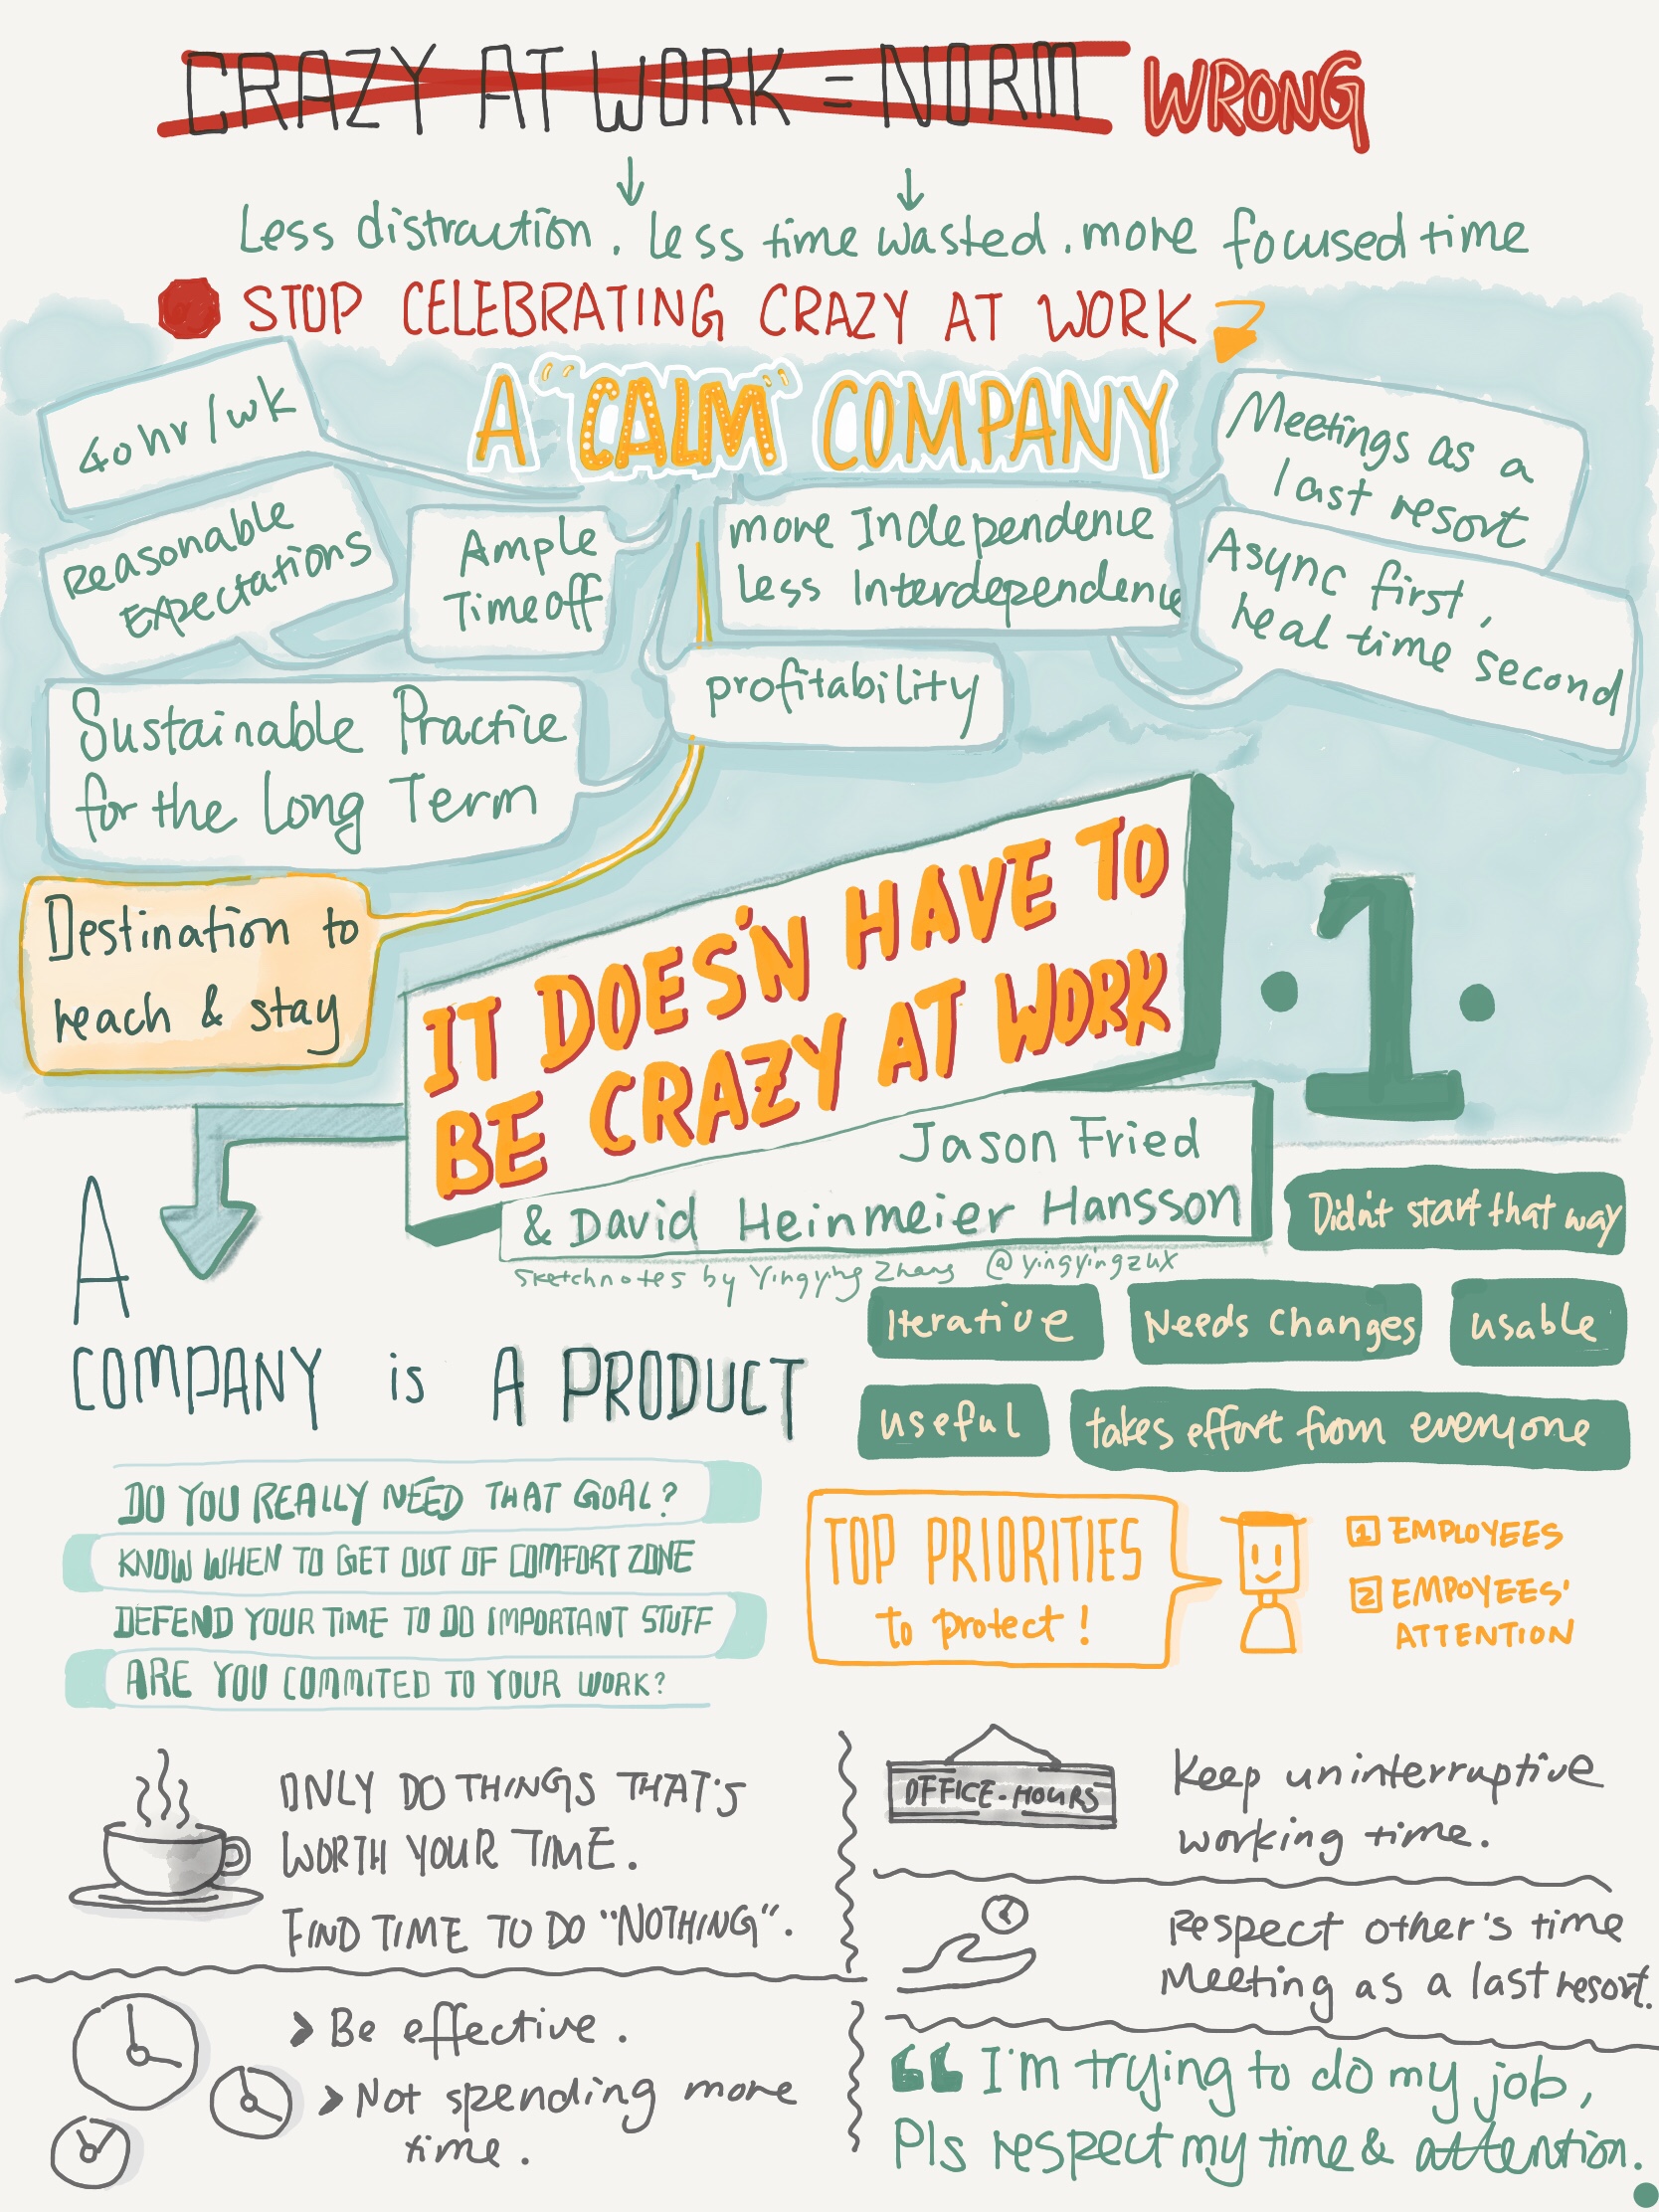 CRAZY AT WORK = NORM WRONG
Less distraction . less time wasted . more focused time
STOP CELEBRATING CRAZY AT WORK
A "CALM" COMPANY
40hr / wk
Reasonable
Expectations
Ample
Timeoff
more Independence
less Interdependence
Meetings as a
last resort
Async first,
real time second
Sustainable Practice
for the Long Term
profitability
Destination to
reach & stay
IT DOES'N HAVE TO
BE CRAZY AT WORK
Jason Fried
& David Heinmeier Hansson
sketchnotes by Yingying Zhang @yingyingzux
.1.
A
COMPANY is A PRODUCT
Didn't start that way
Iterative
Needs Changes
usable
useful
takes effort from everyone
DO YOU REALLY NEED THAT GOAL?
KNOW WHEN TO GET OUT OF COMFORT ZONE
DEFEND YOUR TIME TO DO IMPORTANT STUFF
ARE YOU COMMITED TO YOUR WORK?
TOP PRIORITIES
to protect!
1 EMPLOYEES
2 EMPOYEES'
ATTENTION
ONLY DO THINGS THAT'S
WORTH YOUR TIME.
FIND TIME TO DO "NOTHING".
OFFICE-HOURS
Keep uninterruptive
working time.
Respect other's time
Meeting as a last resort.
> Be effective.
> Not spending more
time.
“I'm trying to do my job,
Pls respect my time & attention.